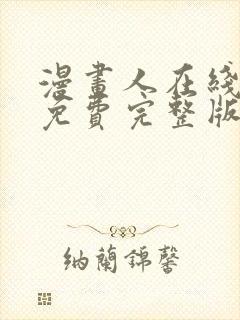 漫畫人在綫
免費完整版
纳蘭錦馨